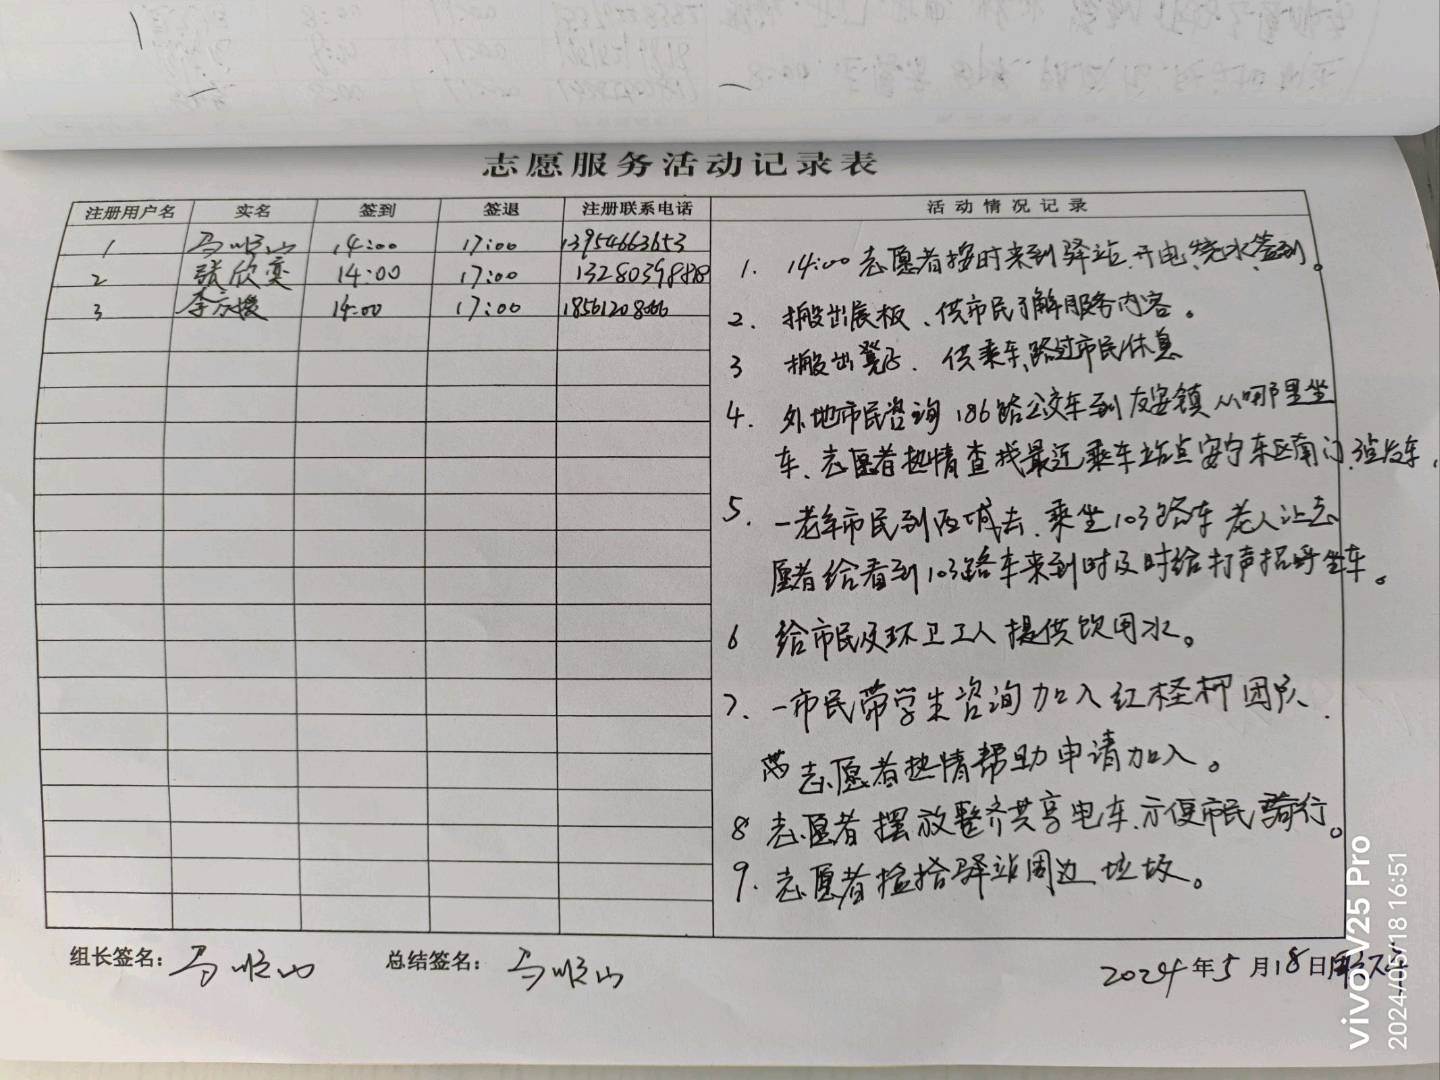 志愿服务活动记录表
注册用户名 实名 签到 签退 注册联系电话 活动情况记录
1 马顺山 14:00 17:00 13954663653
2 张欣奕 14:00 17:00 13280398878
3 李 14:00 17:00
1. 14:00志愿者按时来到驿站、开电、烧水、签到。
2. 搬出展板、供市民了解服务内容。
3 搬出凳子、供乘车、路过市民休息
4. 外地市民咨询186路公交车到友安镇从哪里坐
车、志愿者热情查找最近乘车站点安宁东区南门
5. 一老年市民到西城去、乘坐103路车老人让志
愿者给看到103路车来到时及时给打声招呼坐车。
6 给市民及环卫工人提供饮用水。
7. 一市民带学生咨询加入红柽柳团队、
志愿者热情帮助申请加入。
8 志愿者摆放整齐共享电车、方便市民骑行。
9. 志愿者捡拾驿站周边垃圾。
组长签名：马顺山 总结签名：马顺山 2024年5月18日
vivo V25 Pro
2024/05/18 16:51